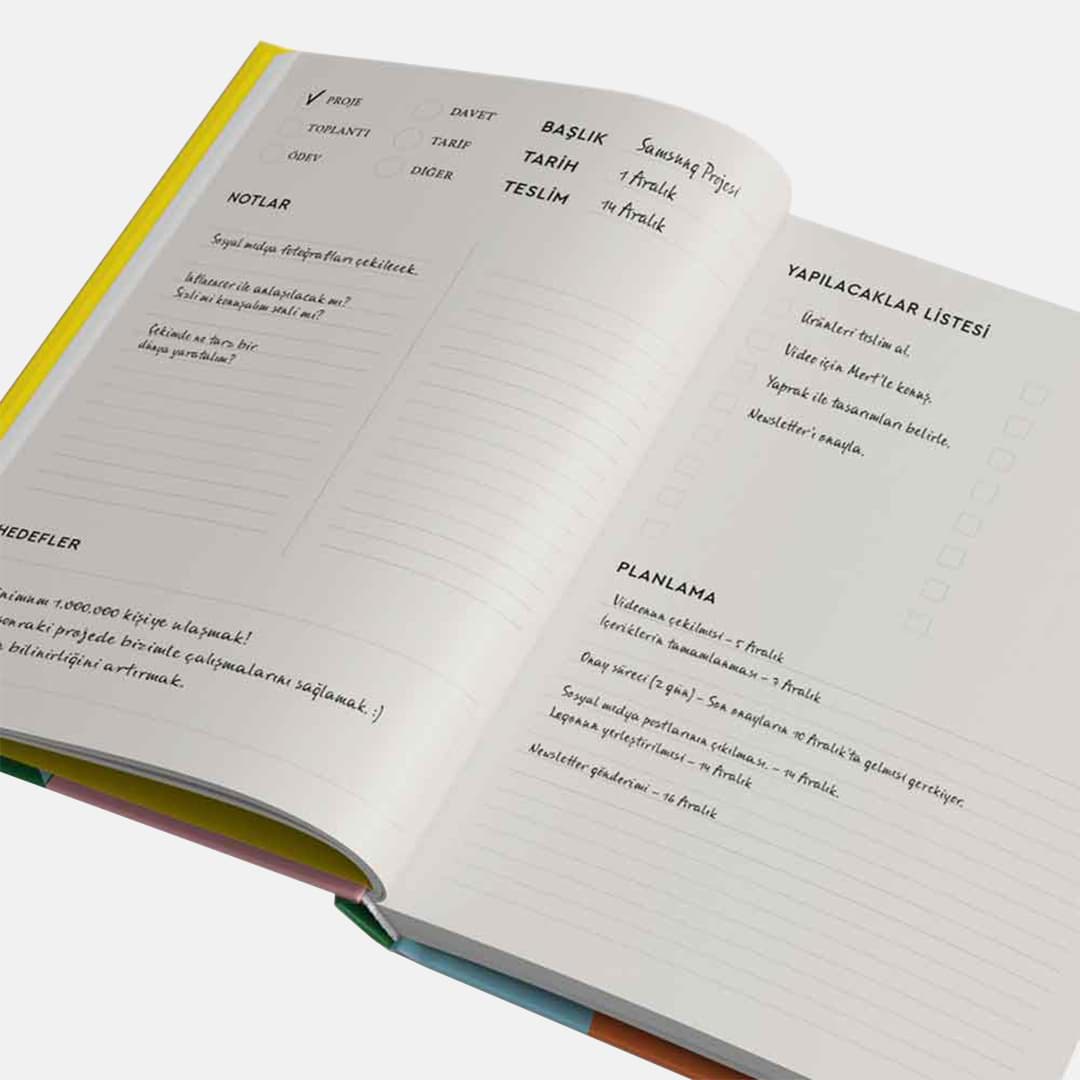 PROJE
TOPLANTI
ÖDEV
DAVET
TARİF
DİĞER
BAŞLIK Samsung Projesi
TARİH 1 Aralık
TESLİM 14 Aralık
NOTLAR
Sosyal medya fotoğrafları çekilecek.
Influencer ile anlaşılacak mı?
Sizli mi konuşalım senli mi?
Çekimde ne tarz bir
dünya yaratalım?
HEDEFLER
1.000.000 kişiye ulaşmak!
sonraki projede bizimle çalışmalarını sağlamak. :)
bilinirliğini artırmak.
YAPILACAKLAR LİSTESİ
Ürünleri teslim al.
Video için Mert'le konuş.
Yaprak ile tasarımları belirle.
Newsletter'ı onayla.
PLANLAMA
Videonun çekilmesi – 5 Aralık
İçeriklerin tamamlanması – 7 Aralık
Onay süreci (2 gün) – Son onayların 10 Aralık'ta gelmesi gerekiyor.
Sosyal medya postlarının çıkılması. – 14 Aralık.
Logonun yerleştirilmesi – 14 Aralık
Newsletter gönderimi – 16 Aralık